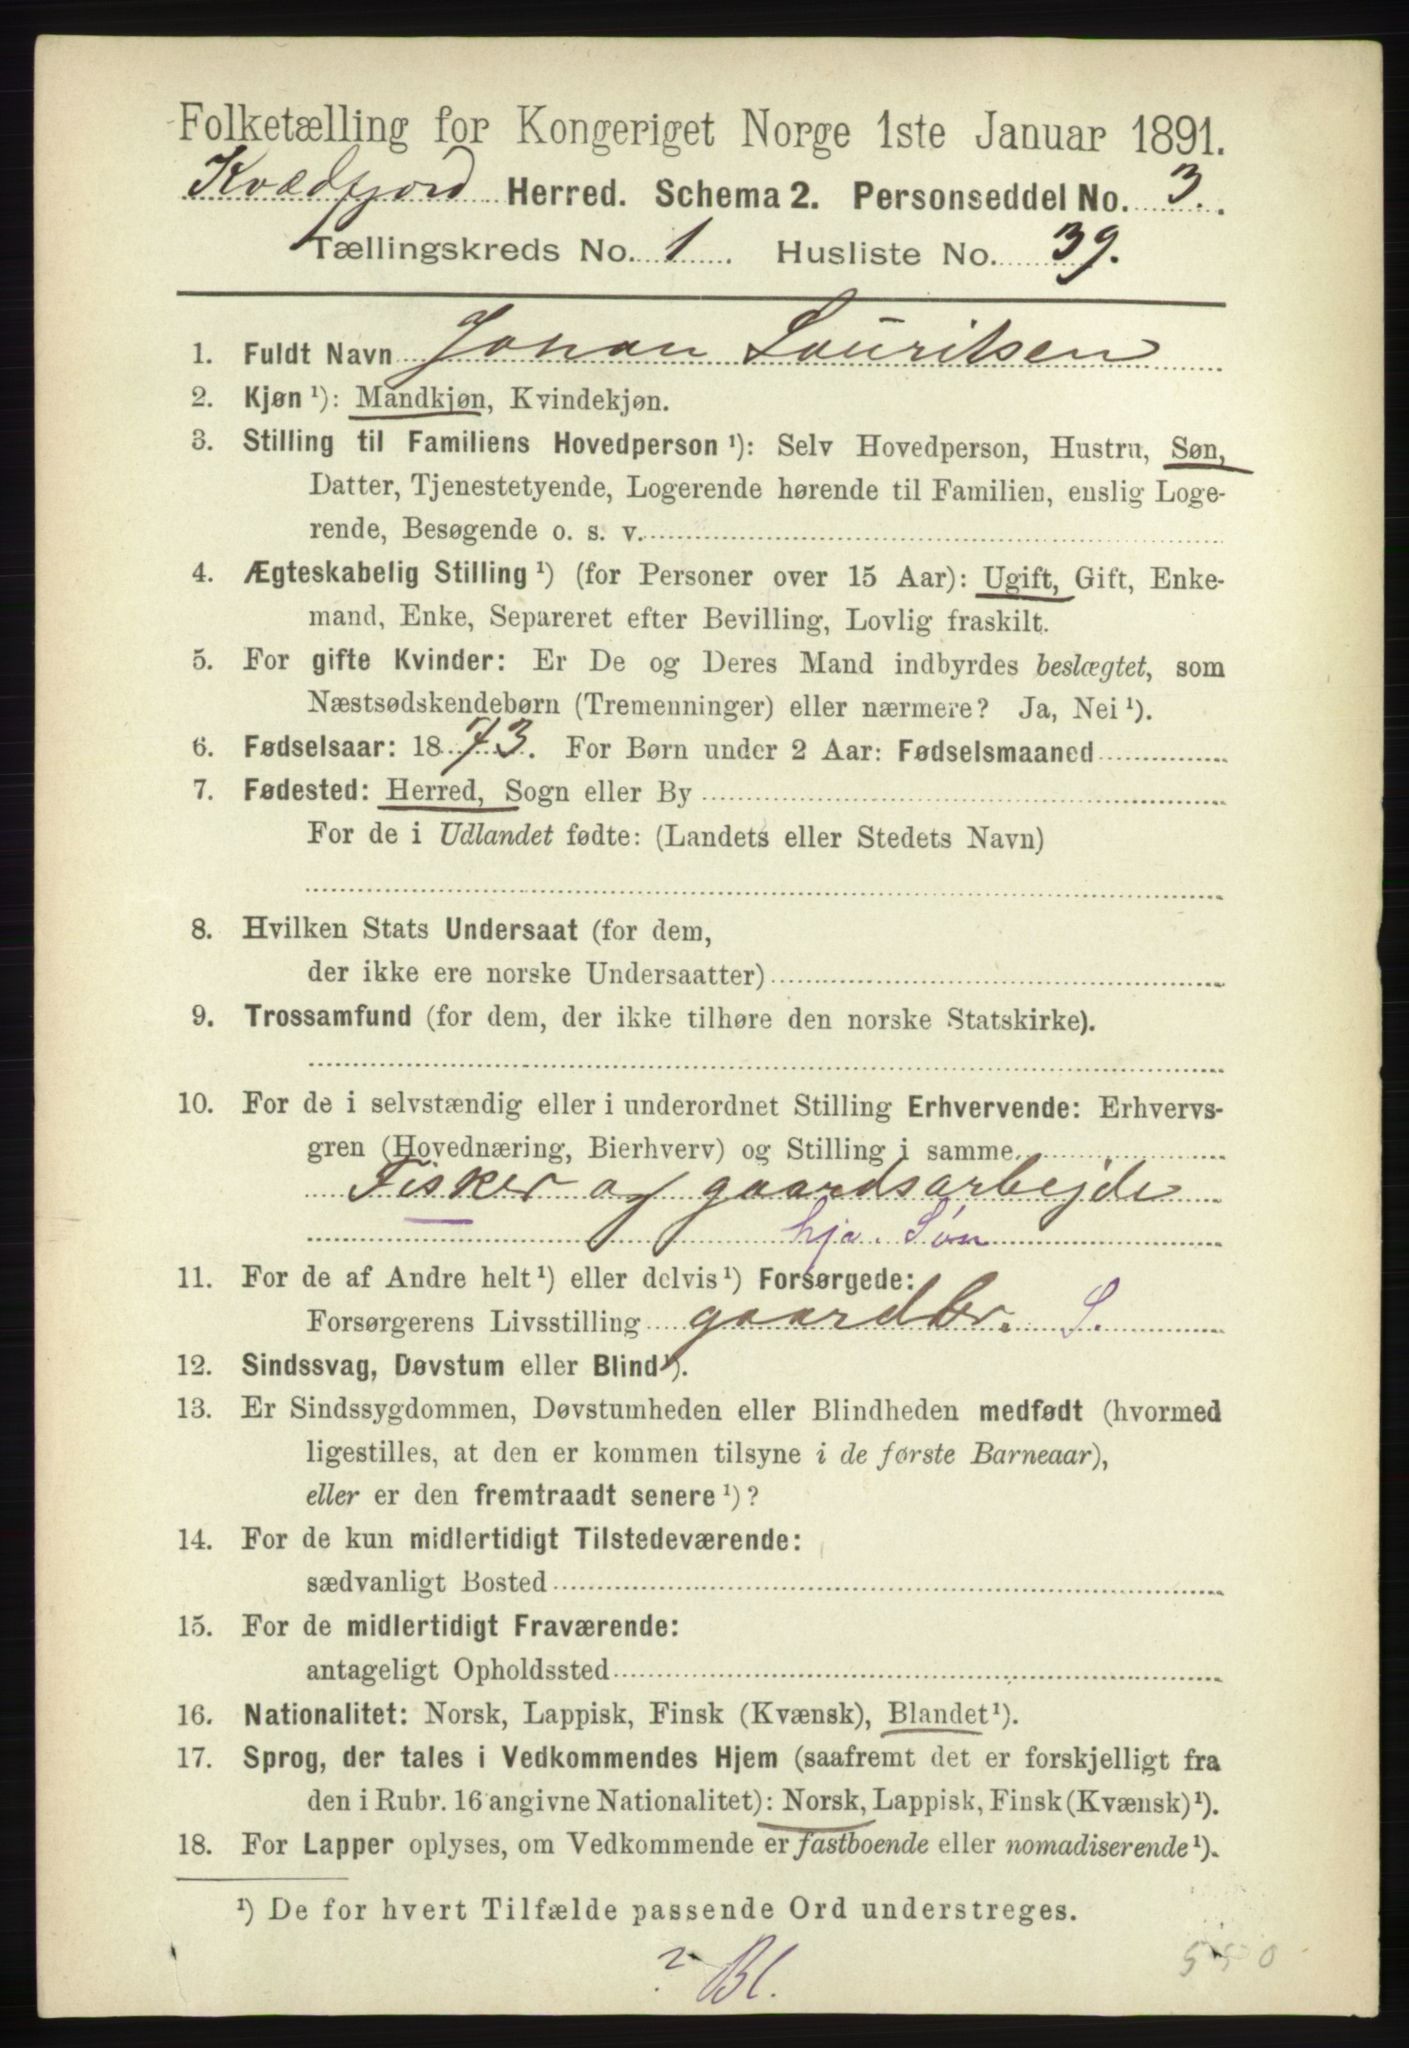 Folketælling for Kongeriget Norge 1ste Januar 1891.
Kvædfjord Herred. Schema 2. Personseddel No. 3.
Tællingskreds No. 1 Husliste No. 39.
1. Fuldt Navn Johan Lauritsen
2. Kjøn ¹): Mandkjøn, Kvindekjøn.
3. Stilling til Familiens Hovedperson ¹): Selv Hovedperson, Hustru, Søn,
Datter, Tjenestetyende, Logerende hørende til Familien, enslig Loge-
rende, Besøgende o. s. v.
4. Ægteskabelig Stilling ¹) (for Personer over 15 Aar): Ugift, Gift, Enke-
mand, Enke, Separeret efter Bevilling, Lovlig fraskilt.
5. For gifte Kvinder: Er De og Deres Mand indbyrdes beslægtet, som
Næstsødskendebørn (Tremenninger) eller nærmere? Ja, Nei ¹).
6. Fødselsaar: 1873. For Børn under 2 Aar: Fødselsmaaned
7. Fødested: Herred, Sogn eller By
For de i Udlandet fødte: (Landets eller Stedets Navn)
8. Hvilken Stats Undersaat (for dem,
der ikke ere norske Undersaatter)
9. Trossamfund (for dem, der ikke tilhøre den norske Statskirke).
10. For de i selvstændig eller i underordnet Stilling Erhvervende: Erhvervs-
gren (Hovednæring, Bierhverv) og Stilling i samme.
Fisker og gaardsarbejde
hja. Søn
11. For de af Andre helt ¹) eller delvis ¹) Forsørgede:
Forsørgerens Livsstilling gaardbr. S.
12. Sindssvag, Døvstum eller Blind ¹).
13. Er Sindssygdommen, Døvstumheden eller Blindheden medfødt (hvormed
ligestilles, at den er kommen tilsyne i de første Barneaar),
eller er den fremtraadt senere ¹)?
14. For de kun midlertidigt Tilstedeværende:
sædvanligt Bosted
15. For de midlertidigt Fraværende:
antageligt Opholdssted
16. Nationalitet: Norsk, Lappisk, Finsk (Kvænsk), Blandet ¹).
17. Sprog, der tales i Vedkommendes Hjem (saafremt det er forskjelligt fra
den i Rubr. 16 angivne Nationalitet): Norsk, Lappisk, Finsk (Kvænsk) ¹).
18. For Lapper oplyses, om Vedkommende er fastboende eller nomadiserende ¹).
¹) De for hvert Tilfælde passende Ord understreges.
? Bl.
550